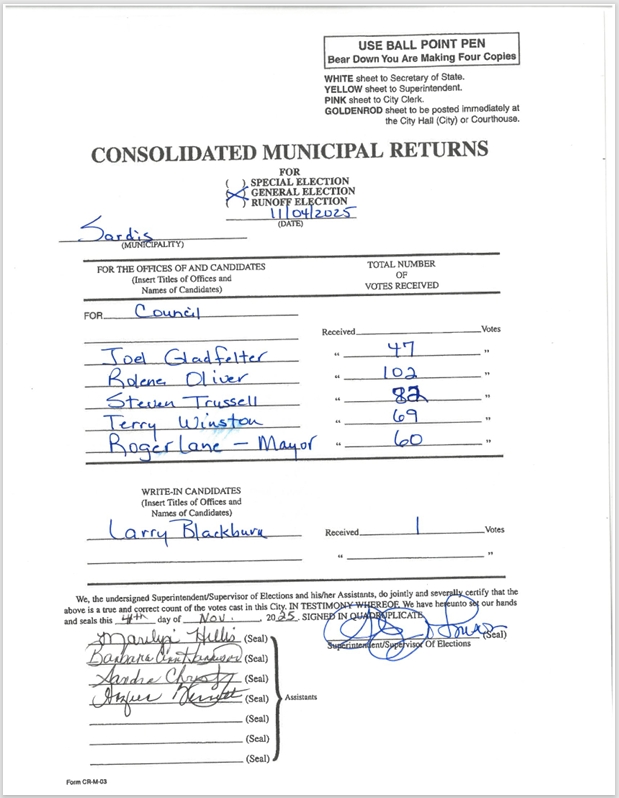 USE BALL POINT PEN
Bear Down You Are Making Four Copies
WHITE sheet to Secretary of State.
YELLOW sheet to Superintendent.
PINK sheet to City Clerk.
GOLDENROD sheet to be posted immediately at
the City Hall (City) or Courthouse.
CONSOLIDATED MUNICIPAL RETURNS
FOR
( ) SPECIAL ELECTION
(X) GENERAL ELECTION
( ) RUNOFF ELECTION
11/04/2025
(DATE)
Sardis
(MUNICIPALITY)
FOR THE OFFICES OF AND CANDIDATES
(Insert Titles of Offices and
Names of Candidates)
TOTAL NUMBER
OF
VOTES RECEIVED
FOR Council
Received Votes
Joel Gladfelter " 47 "
Rolena Oliver " 102 "
Steven Trussell " 82 "
Terry Winston " 69 "
Roger Lane - Mayor " 60 "
WRITE-IN CANDIDATES
(Insert Titles of Offices and
Names of Candidates)
Larry Blackburn Received 1 Votes
" "
We, the undersigned Superintendent/Supervisor of Elections and his/her Assistants, do jointly and severally certify that the
above is a true and correct count of the votes cast in this City. IN TESTIMONY WHEREOF, We have hereunto set our hands
and seals this 4th day of Nov. , 2025. SIGNED IN QUADRUPLICATE.
(Seal)
Superintendent/Supervisor Of Elections
Marilyn Hillis (Seal)
Barbara Ann (Seal)
Sandra (Seal)
(Seal)
Assistants
(Seal)
(Seal)
(Seal)
Form CR-M-03